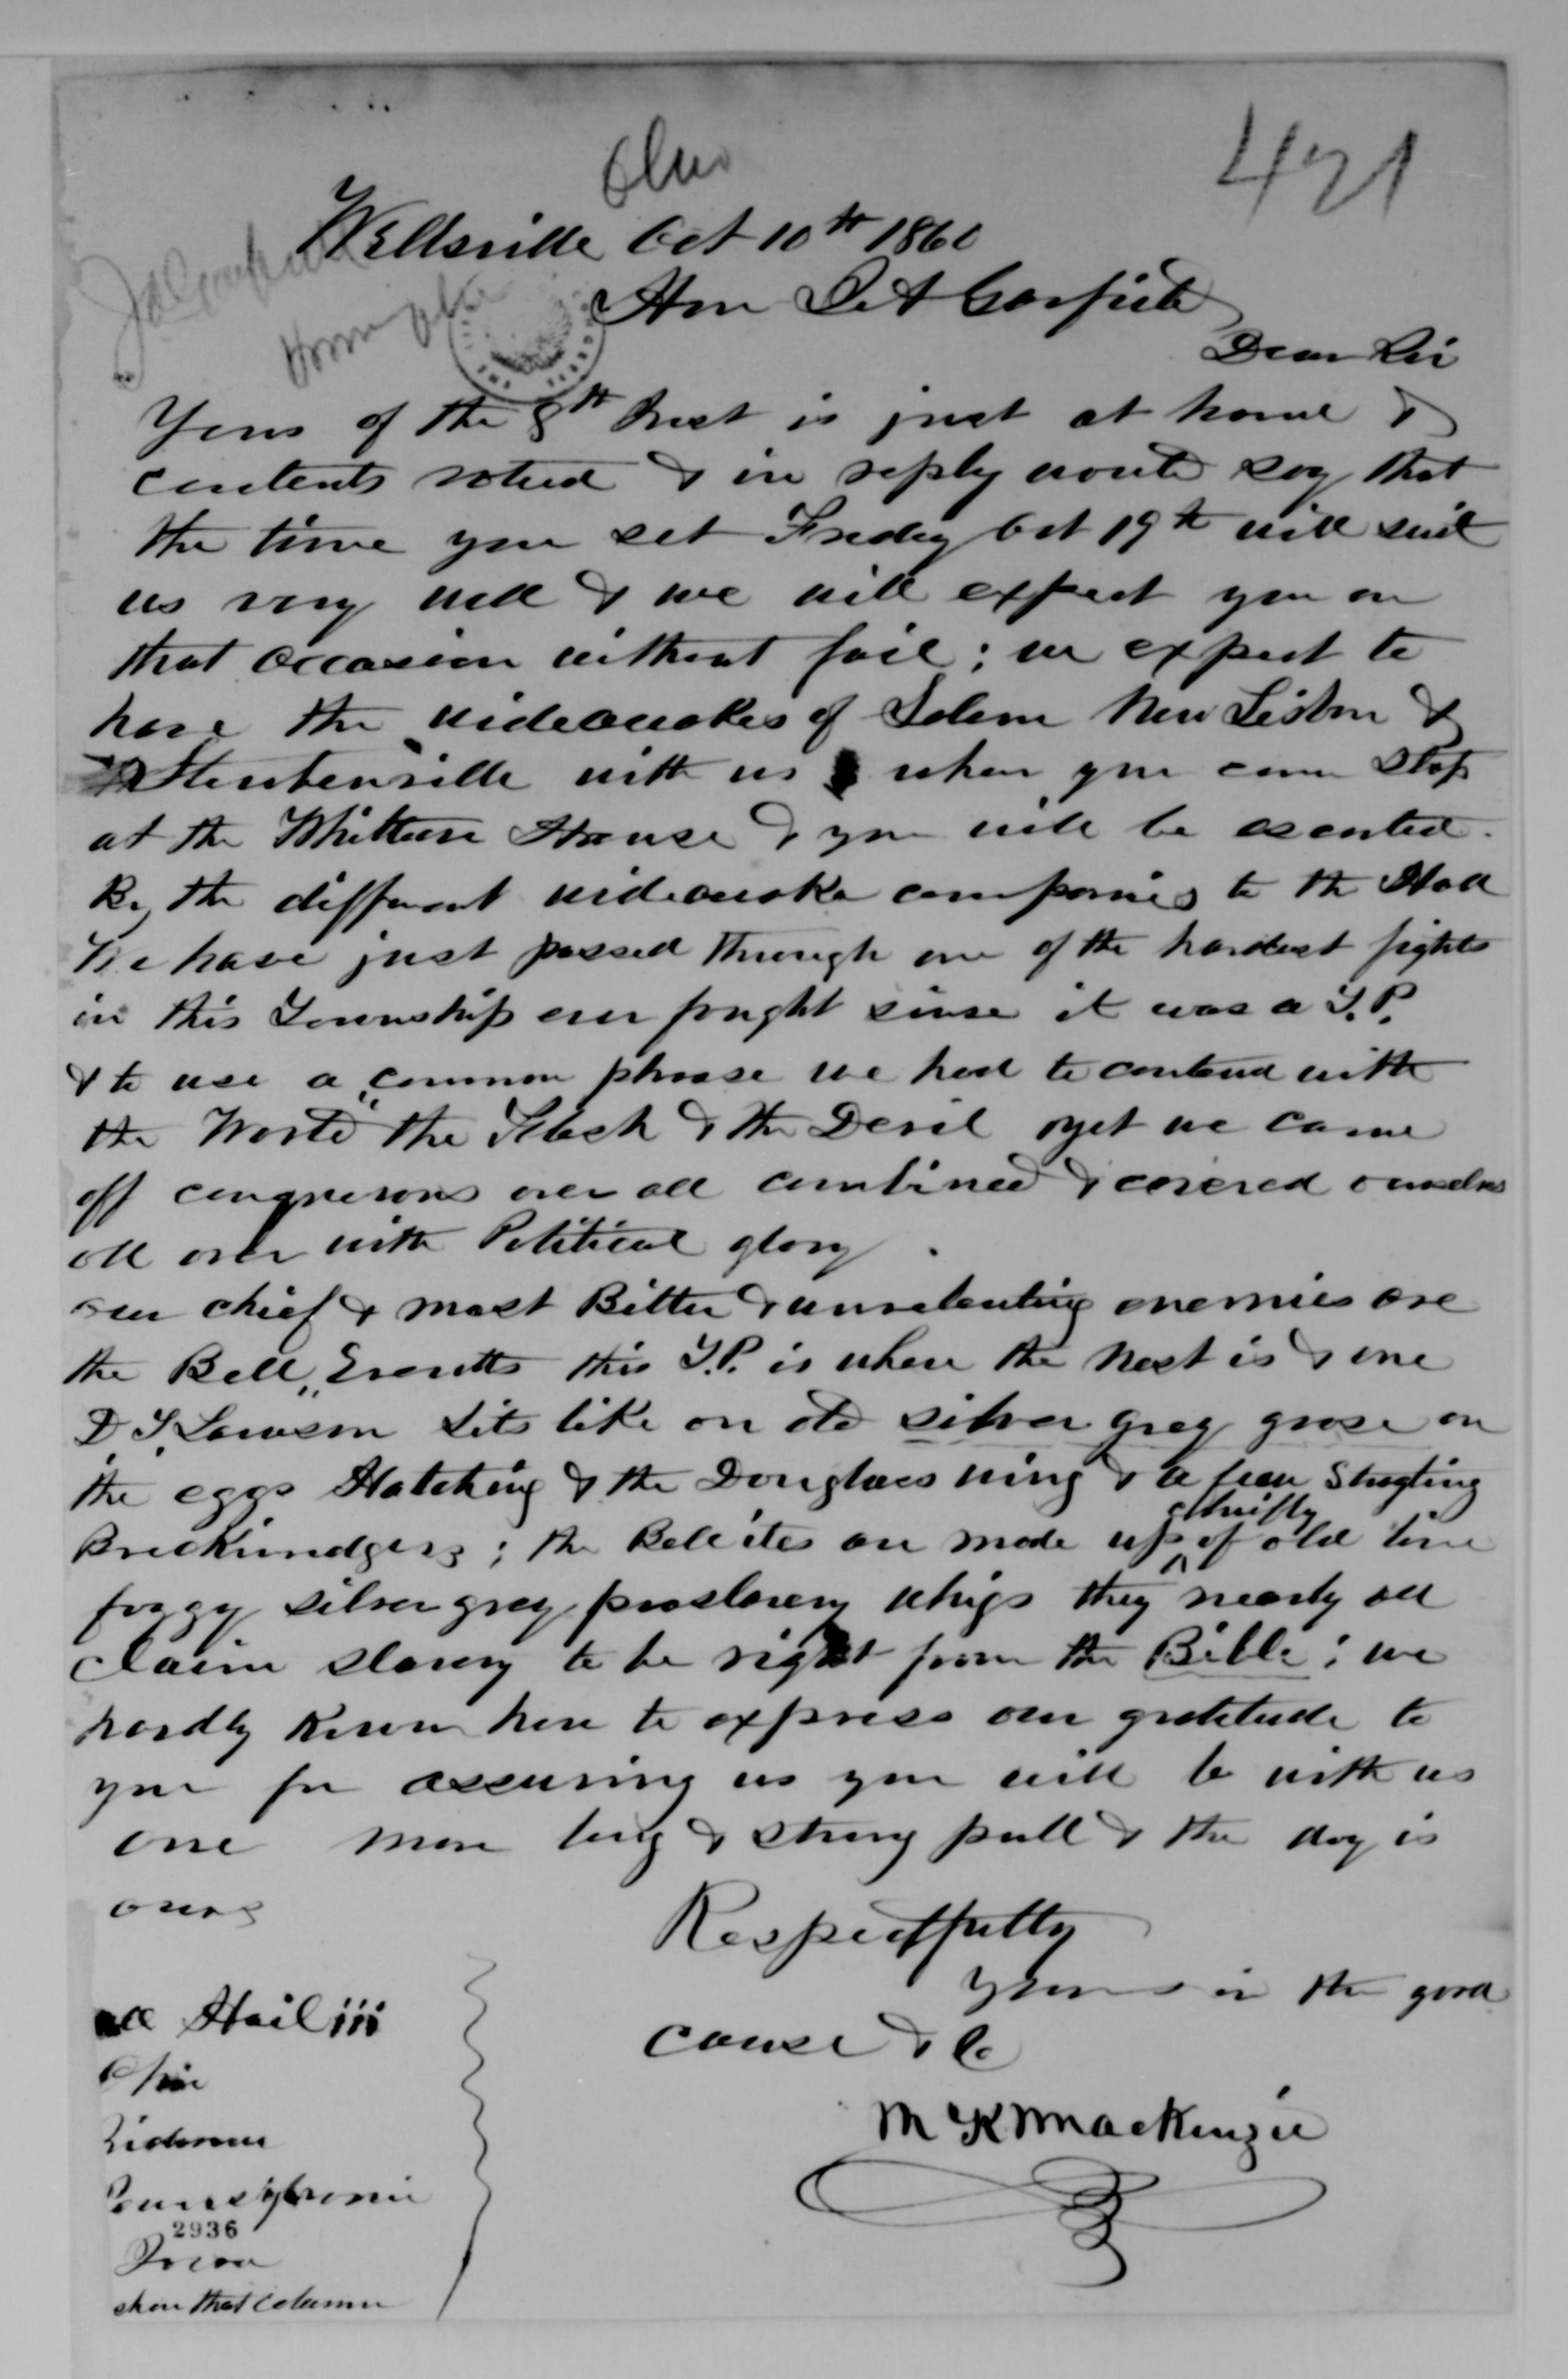 Ohio
421
Wellsville Oct 10th 1860
Hon J A Garfield
Dear Sir
Yours of the 8th Inst is just at hand &
contents noted & in reply would say that
the time you set Friday Oct 19th will suit
us very well & we will expect you on
that occasion without fail; we expect to
have the wideawakes of Salem New Lisbon &
Steubenville with us when you come Stop
at the Whittacre House & you will be escorted
By the different wideawake companies to the Hall
We have just passed through one of the hardest fights
in this Township ever fought since it was a T.P.
& to use a common phrase we had to contend with
the "World" the Flesh & the Devil yet we came
off conquerors over all combined & covered ourselves
all over with Political glory.
our chief & most Bitter & unrelenting enemies are
the Bell, Everetts this T.P. is where the Nest is & one
D. T. Lawson Sits like an old silver grey goose on
the eggs Hatching & the Douglass wing & a few Stragling
Breckinridgers; the Bellites are made up chiefly of old line
foggy silver grey proslavery whigs they nearly all
claim slavery to be right from the Bible; we
hardly know how to express our gratitude to
you for assuring us you will be with us
one more long & strong pull & the day is
ours
Respectfully
yours in the good
cause & C
M K Mackenzie
all Hail !!!
Ohio
Indiana
Pennsylvania
2936
Iowa
show that column